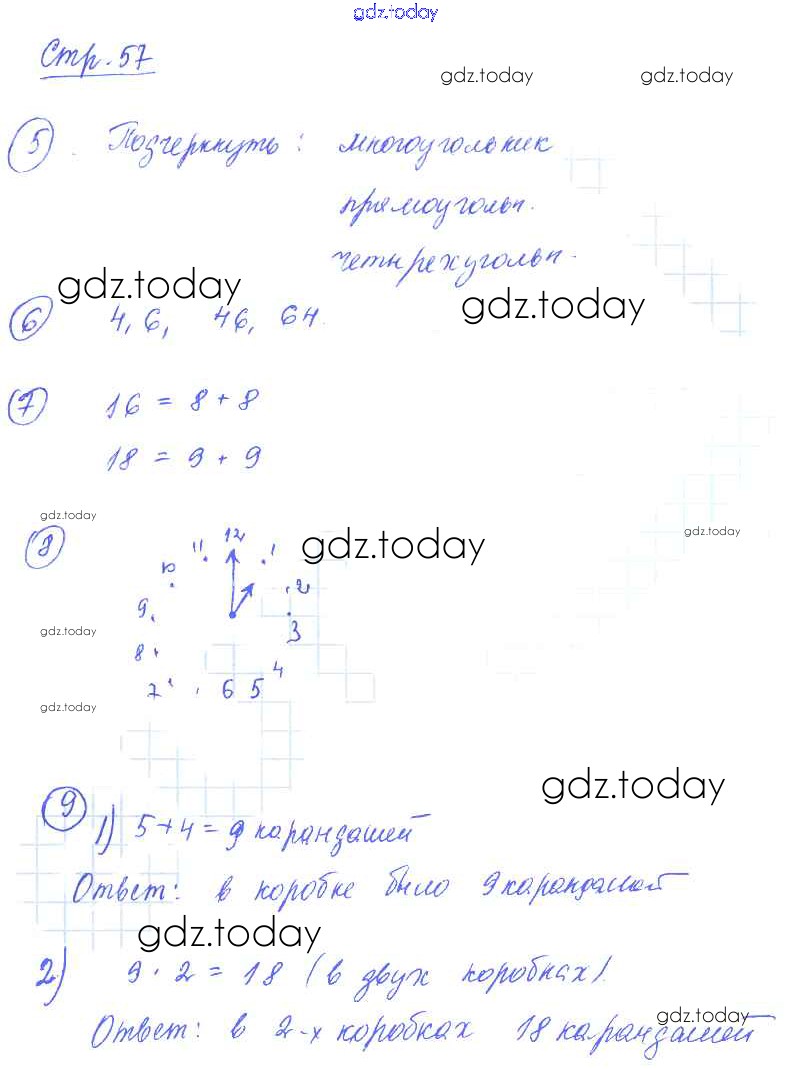 gdz.today
Стр. 57
gdz.today gdz.today
5. Подчеркнуть: многоугольник
прямоугольн.
четырехугольн.
gdz.today gdz.today
6 4, 6, 46, 64.
7 16 = 8 + 8
18 = 9 + 9
gdz.today
8 gdz.today gdz.today
12
11 1
10 2
9 3
gdz.today
8 4
7 6 5
gdz.today
gdz.today
9 1) 5+4=9 карандашей
Ответ: в коробке было 9 карандашей
gdz.today
2) 9·2=18 (в двух коробках).
gdz.today
Ответ: в 2-х коробках 18 карандашей